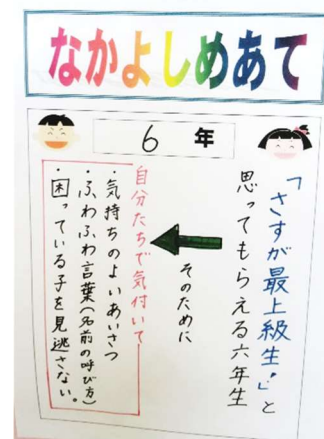 なかよしめあて
6年
「さすが最上級生!」と
思ってもらえる六年生
そのために
自分たちで気付いて
・気持ちのよいあいさつ
・ふわふわ言葉(名前の呼び方)
・困っている子を見逃さない。